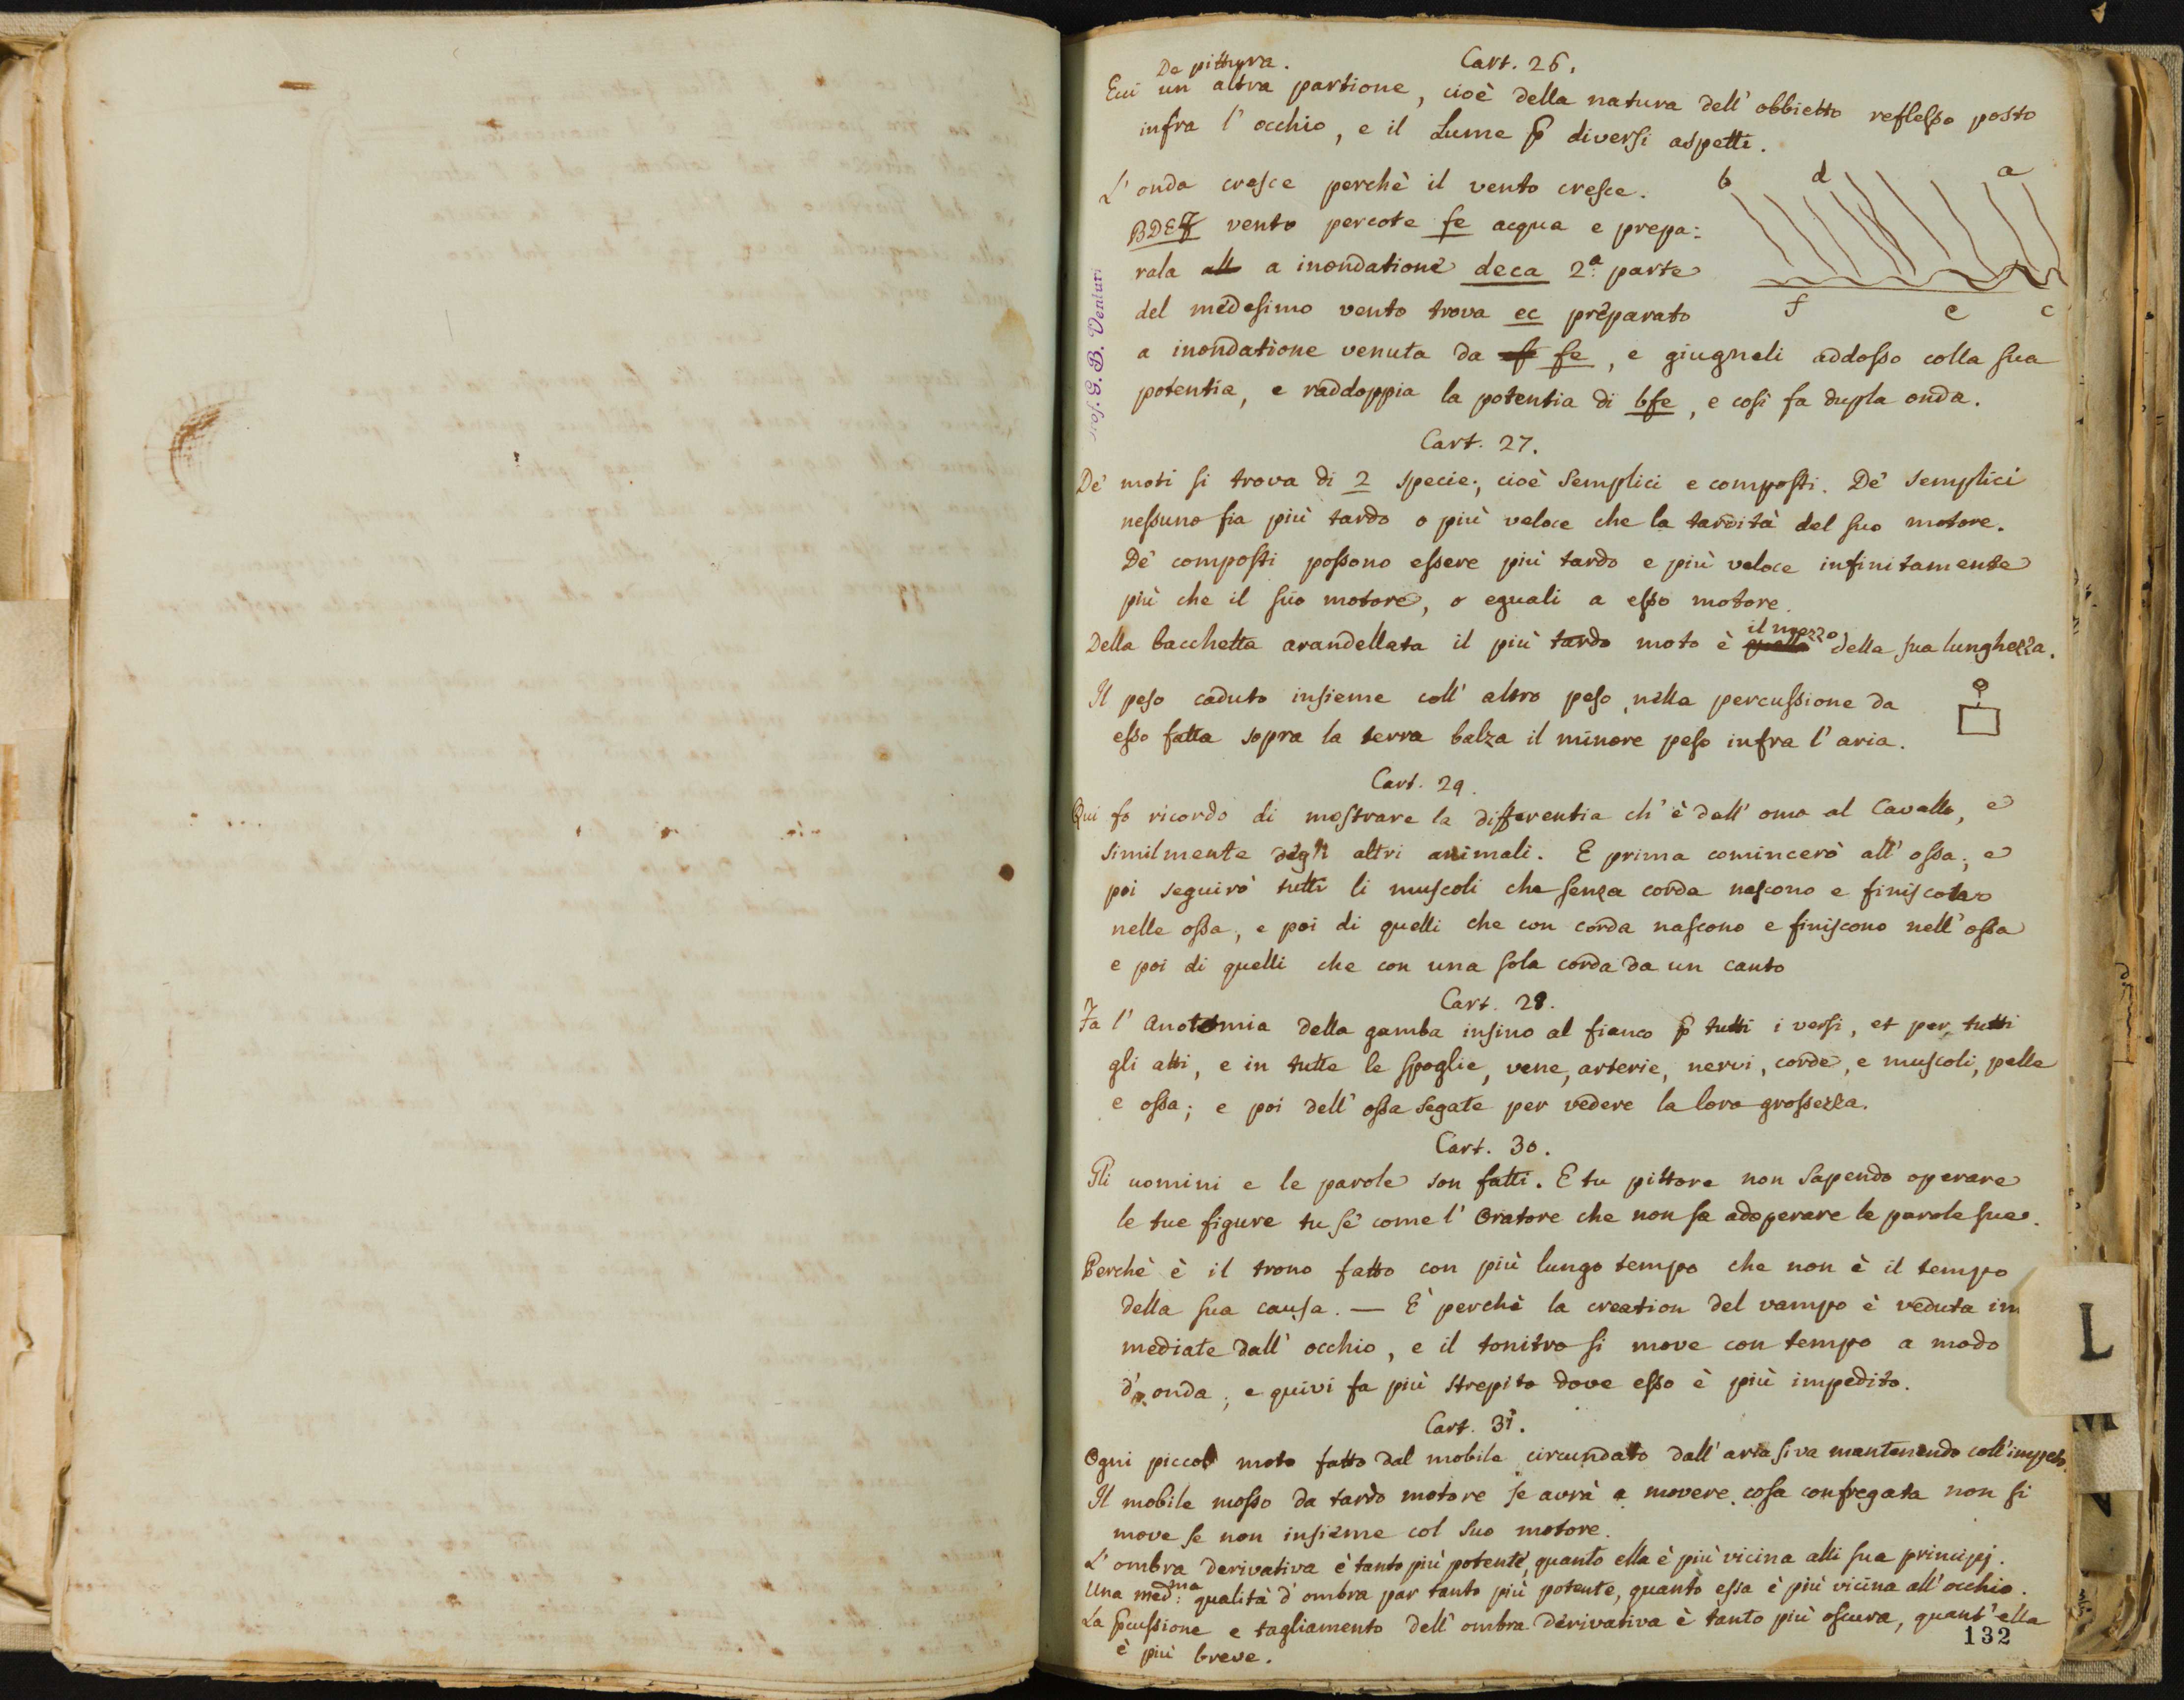 De pittura. Cart. 26.
Evvi un altra partione, cioè della natura dell' obbietto reflesso posto
infra l' occhio, e il Lume p diversi aspetti.
L' onda cresce perchè il vento cresce.
b d a
BDEf vento percote fe acqua e prepa:
rala all a inondatione deca 2.a parte
del medesimo vento trova ec preparato
f e c
a inondatione venuta da ef fe, e giugneli addosso colla sua
potentia, e raddoppia la potentia di bfe, e così fa dupla onda.
Prof. G. B. Venturi
Cart. 27.
De' moti si trova di 2 specie; cioè semplici e composti. De' semplici
nessuno fia più tardo o più veloce che la tardità del suo motore.
De' composti possono essere più tardo e più veloce infinitamente
più che il suo motore, o eguali a esso motore.
il mezzo
Della bacchetta arandellata il più tardo moto è quello della sua lunghezza.
Il peso caduto insieme coll' altro peso nella percussione da
esso fatta sopra la terra balza il minore peso infra l' aria.
Cart. 29.
Qui fo ricordo di mostrare la differentia ch' è dall' omo al Cavallo, e
similmente degli altri animali. E prima comincerò all' ossa; e
poi seguirò tutti li muscoli che senza corda nascono e finiscono
nelle ossa, e poi di quelli che con corda nascono e finiscono nell' ossa
e poi di quelli che con una sola corda da un canto
Cart. 28.
Fa l' Anotomia della gamba insino al fianco p tutti i versi, et per tutti
gli atti, e in tutte le spoglie, vene, arterie, nervi, corde, e muscoli, pelle
e ossa; e poi dell' ossa segate per vedere la loro grossezza.
Cart. 30.
Gli uomini e le parole son fatti. E tu pittore non sapendo operare
le tue figure tu se' come l' Oratore che non sa adoperare le parole sue.
Perchè è il trono fatto con più lungo tempo che non è il tempo
della sua causa. — E' perchè la creation del vampo è veduta im
mediate dall' occhio, e il tonitro si move con tempo a modo
d' onda; e quivi fa più strepito dove esso è più impedito.
L
M
Cart. 31.
Ogni piccol moto fatto dal mobile circundato dall' aria si va mantenendo coll' impeto.
Il mobile mosso da tardo motore se avrà a movere cosa confregata non si
move se non insieme col suo motore.
L' ombra derivativa è tanto più potente, quanto ella è più vicina alli sua principj.
Una med:ma qualità d' ombra par tanto più potente, quanto essa è più vicina all' occhio.
La Pcussione e tagliamento dell' ombra derivativa è tanto più oscura, quant' ella
è più breve.
132